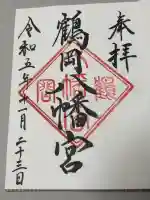 奉拝
鶴岡八幡宮
令和五年十一月二十三日